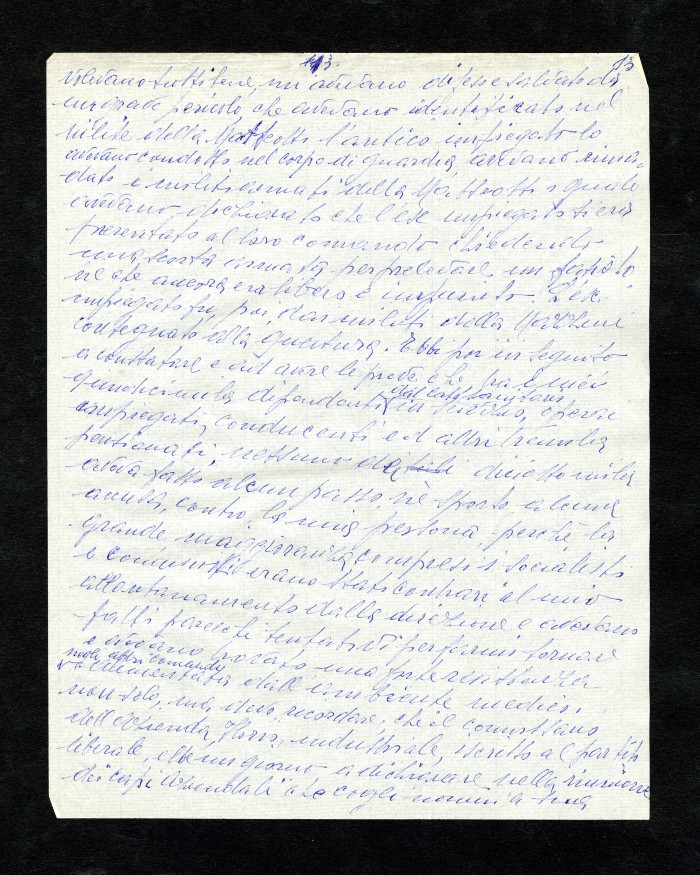 113. 13
volevano tutti bene, mi avevano difeso e salvato da
un grave pericolo che avevano identificato nel
milite della Matteotti l'antico impiegato lo
avevano condotto nel corpo di guardia, avevano
i militi armati della Matteotti i quali
avevano dichiarato che l'ex impiegato si era
presentato al loro comando chiedendo
una scorta armata per prelevare un fascista
che ancora era libero e impunito. L'ex
impiegato fu, poi, dai militi della
consegnato alla questura. Ebbi poi in seguito
a constatare e ad avere le prove che, fra i miei
quindicimila dipendenti dal capi in servizio, operai
impiegati, conducenti ed altri tremila
pensionati, nessuno dei diciottomila
aveva fatto alcun passo, né sporto alcuna
contro la mia persona, perché la
grande maggioranza, compresi i socialisti
e comunisti erano stati contrari al mio
allontanamento dalla direzione e avevano
fatti parecchi tentativi per farmi tornare
e avevano trovato una forte resistenza
negli alti comandi
alimentata dall'ambiente medici.
non solo, ma devo ricordare, che il commissario
dell'Azienda, industriale, iscritto al partito
liberale, ebbe un giorno a dichiarare nella riunione
dei capi aziendali che cogli uomini